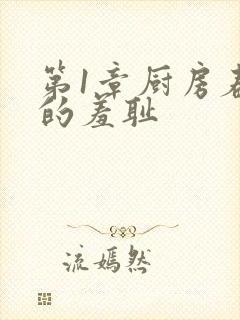 第1章厨房
的羞耻
流嫣然